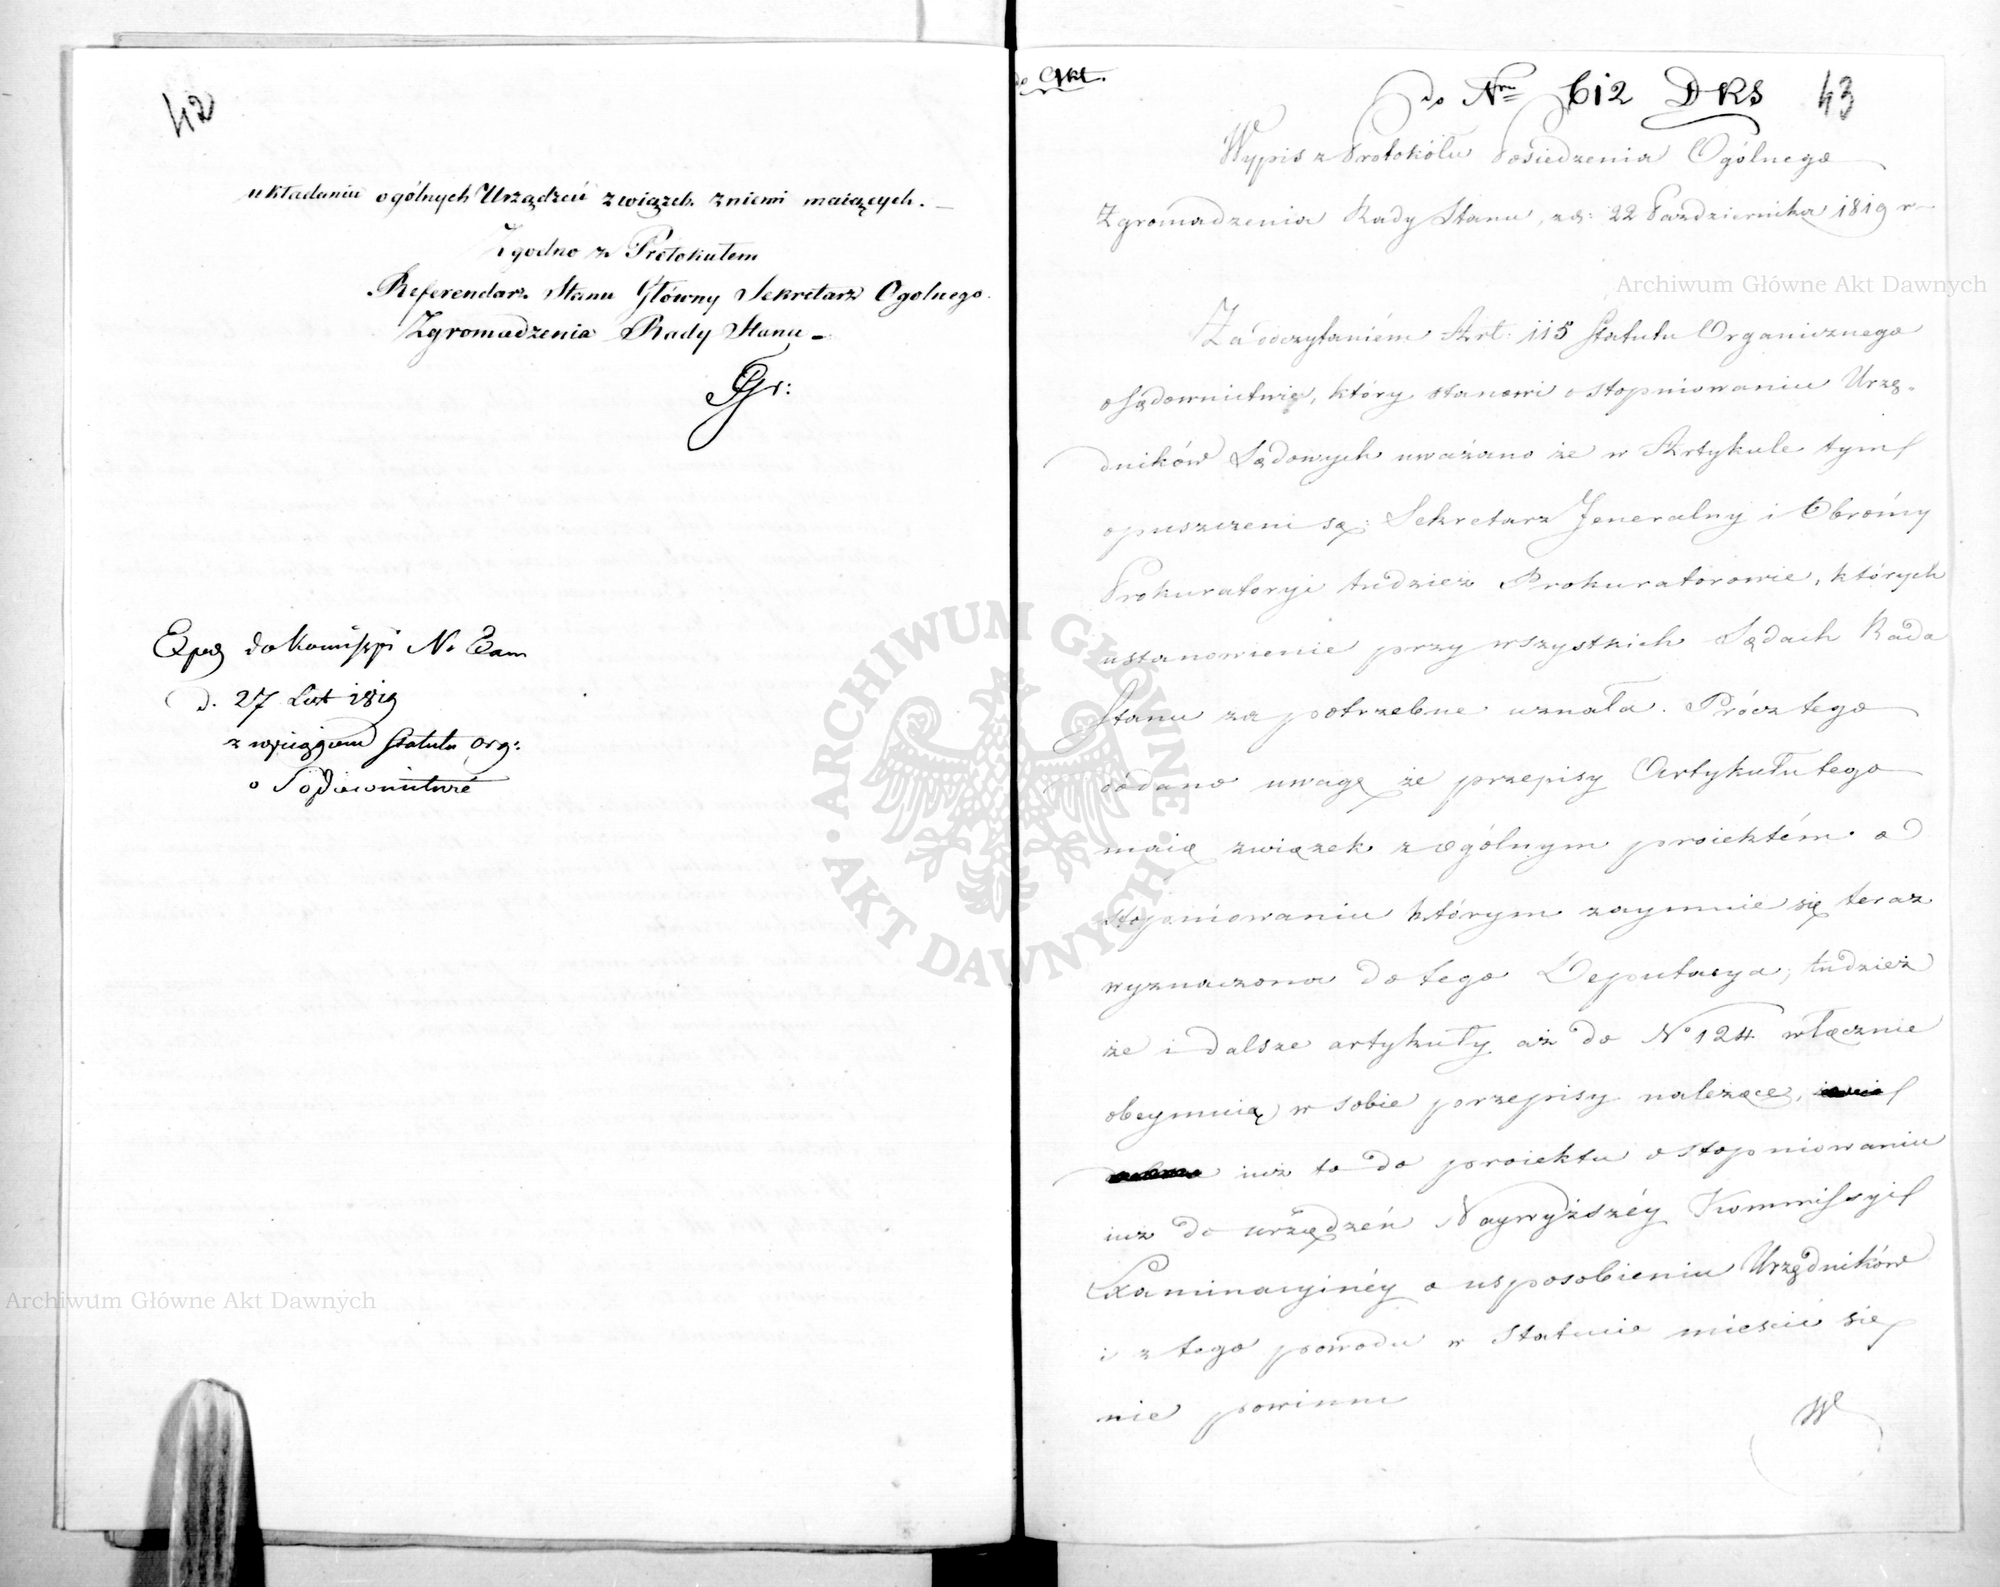 42
układaniu ogólnych Urządzeń związek z niemi maiących. —
Zgodno z Protokułem
Referendarz Stanu Główny Sekretarz Ogolnego
Zgromadzenia Rady Stanu –
d. 27 Lut 1819
z wyciągiem Statutu Org:
o Sądownictwie
do Akt.
do Nru 612 DRS 43
Wypis z Protokółu Posiedzenia Ogólnego
Zgromadzenia Rady Stanu, z d: 22 Października 1819 r –
Archiwum Główne Akt Dawnych
Za odczytaniém Art. 115 Statutu Organicznego
o Sądownictwie, który stanowi o stopniowaniu Urzę-
dników Sądowych uważano że w Artykule tym
opuszczeni są: Sekretarz Jeneralny i Obrońcy
Prokuratoryi tudzież Prokuratorowie, których
ustanowienie przy wszystkich Sądach Rada
Stanu za potrzebne uznała. Prócz tego
dódano uwagę że przepisy Artykułu tego
maią związek z ogólnym proiektém o
stopniowaniu którym zaymuie się teraz
wyznaczona do tego Deputacya, tudzież
że i dalsze artykuły aż do No 124 włącznie
obeymuią w sobie przepisy należące,
iuż to do proiektu o stopniowaniu
iuż do urządzeń Naywyższéy Kommissyi
Examinacyinéy o usposobieniu Urzędników
i z tego powodu w Statucie mieścić się
nie powinny
ARCHIWUM GŁÓWNE AKT DAWNYCH
Archiwum Główne Akt Dawnych